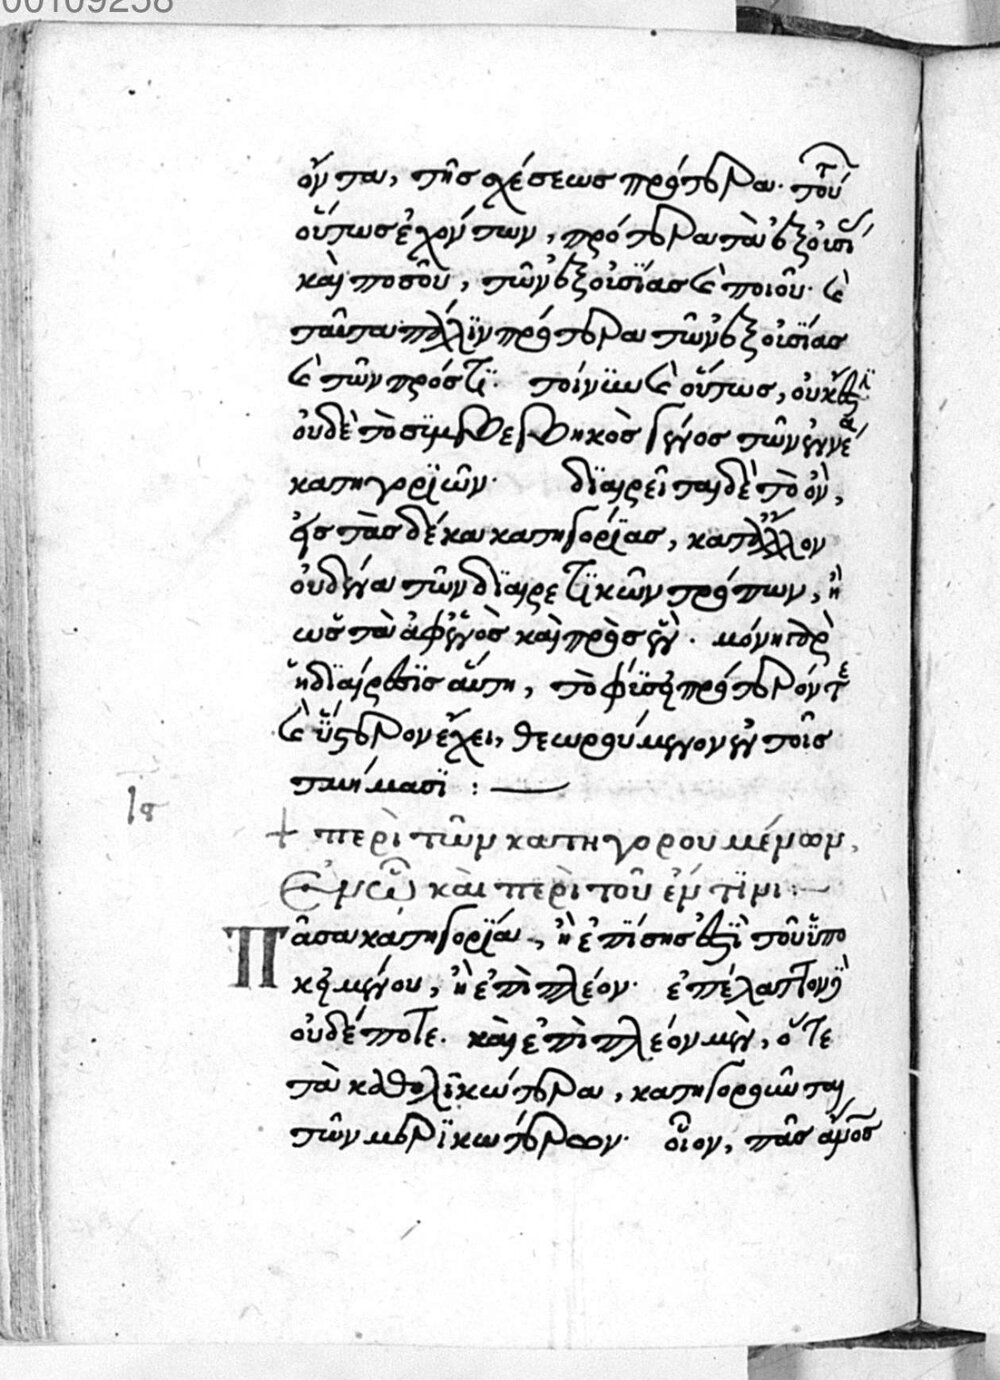 00109258
ὄντα, τῆς σχέσεως πρότερα. τοῦ
οὕτως ἐχόντων, πρότερα τὰ ἐξ οὐσί
καὶ ποσοῦ, τῶν ἐξ οὐσίας καὶ ποιοῦ. καὶ
ταῦτα πάλιν πρότερα τῶν ἐξ οὐσίας
καὶ τῶν πρός τι. τοίνυν καὶ οὕτως, οὐκ ἔστι
οὐδὲ τὸ συμβεβηκὸς γένος τῶν ἐννέα
κατηγοριῶν. διαιρεῖται δὲ τὸ ὂν,
εἰς τὰς δέκα κατηγορίας, κατ' ἄλλον
οὐδένα τῶν διαιρετικῶν τρόπων, ἢ
ὡς τὰ ἀφ' ἑνὸς καὶ πρὸς ἓν. μόνη γὰρ
ἡ διαίρεσις αὕτη, τὸ φύσει πρότερόν τε
καὶ ὕστερον ἔχει, θεωρούμενον ἐν τοῖς
τμήμασι :
+ περὶ τῶν κατηγορουμένων,
καὶ περὶ τοῦ ἔν τινι :
Πᾶσα κατηγορία, ἢ ἐπίσης ἐστὶ τοῦ ὑπο
κειμένου, ἢ ἐπὶ πλέον. ἐπ' ἔλαττον
οὐδέποτε. καὶ ἐπὶ πλέον μὲν, ὅτε
τὰ καθολικώτερα, κατηγοροῦνται
τῶν μερικωτέρων. οἷον, πᾶς ἄνος